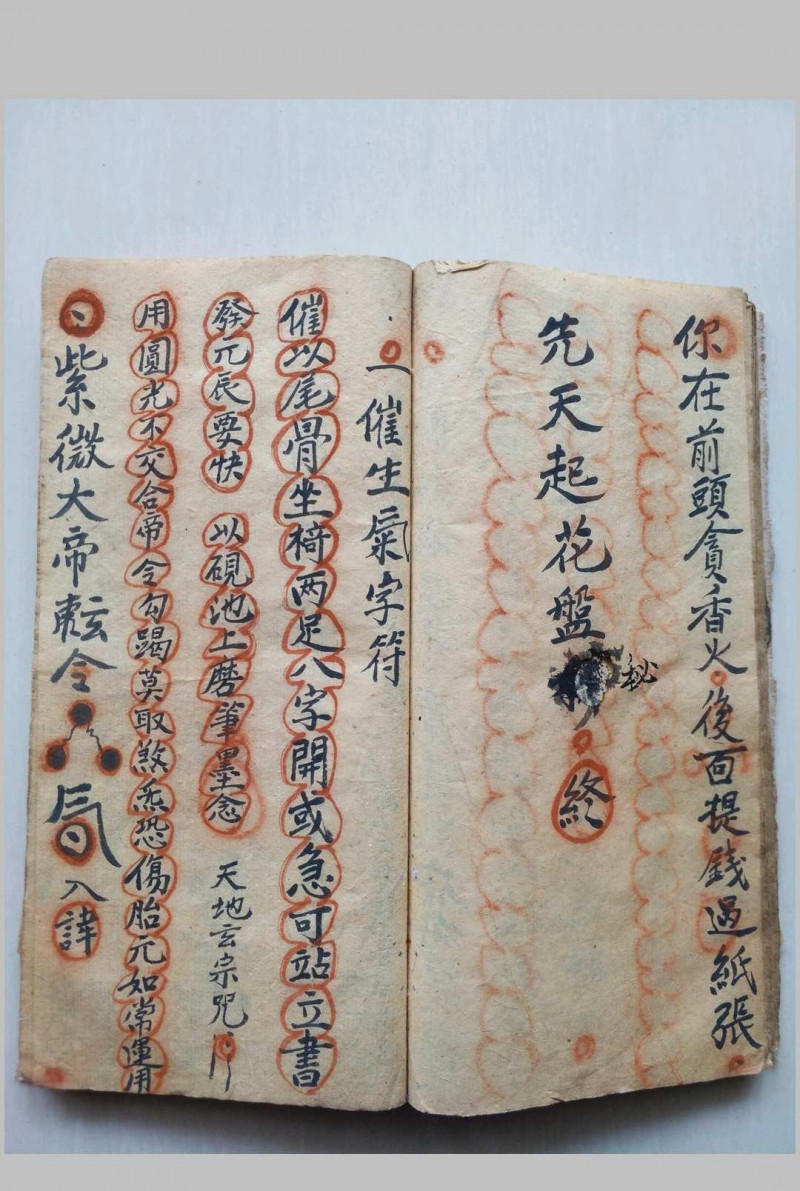 你在前頭貪香火後面提錢過紙張
先天起花盤 秘 終
一催生氣字符
催以尾骨坐椅两足八字開或急可站立書
發元辰要快 以硯池上磨筆墨念 天地玄宗咒
用圓光不交合帝令勾踢莫取煞炁恐傷胎元如常運用
紫微大帝 令 入諱